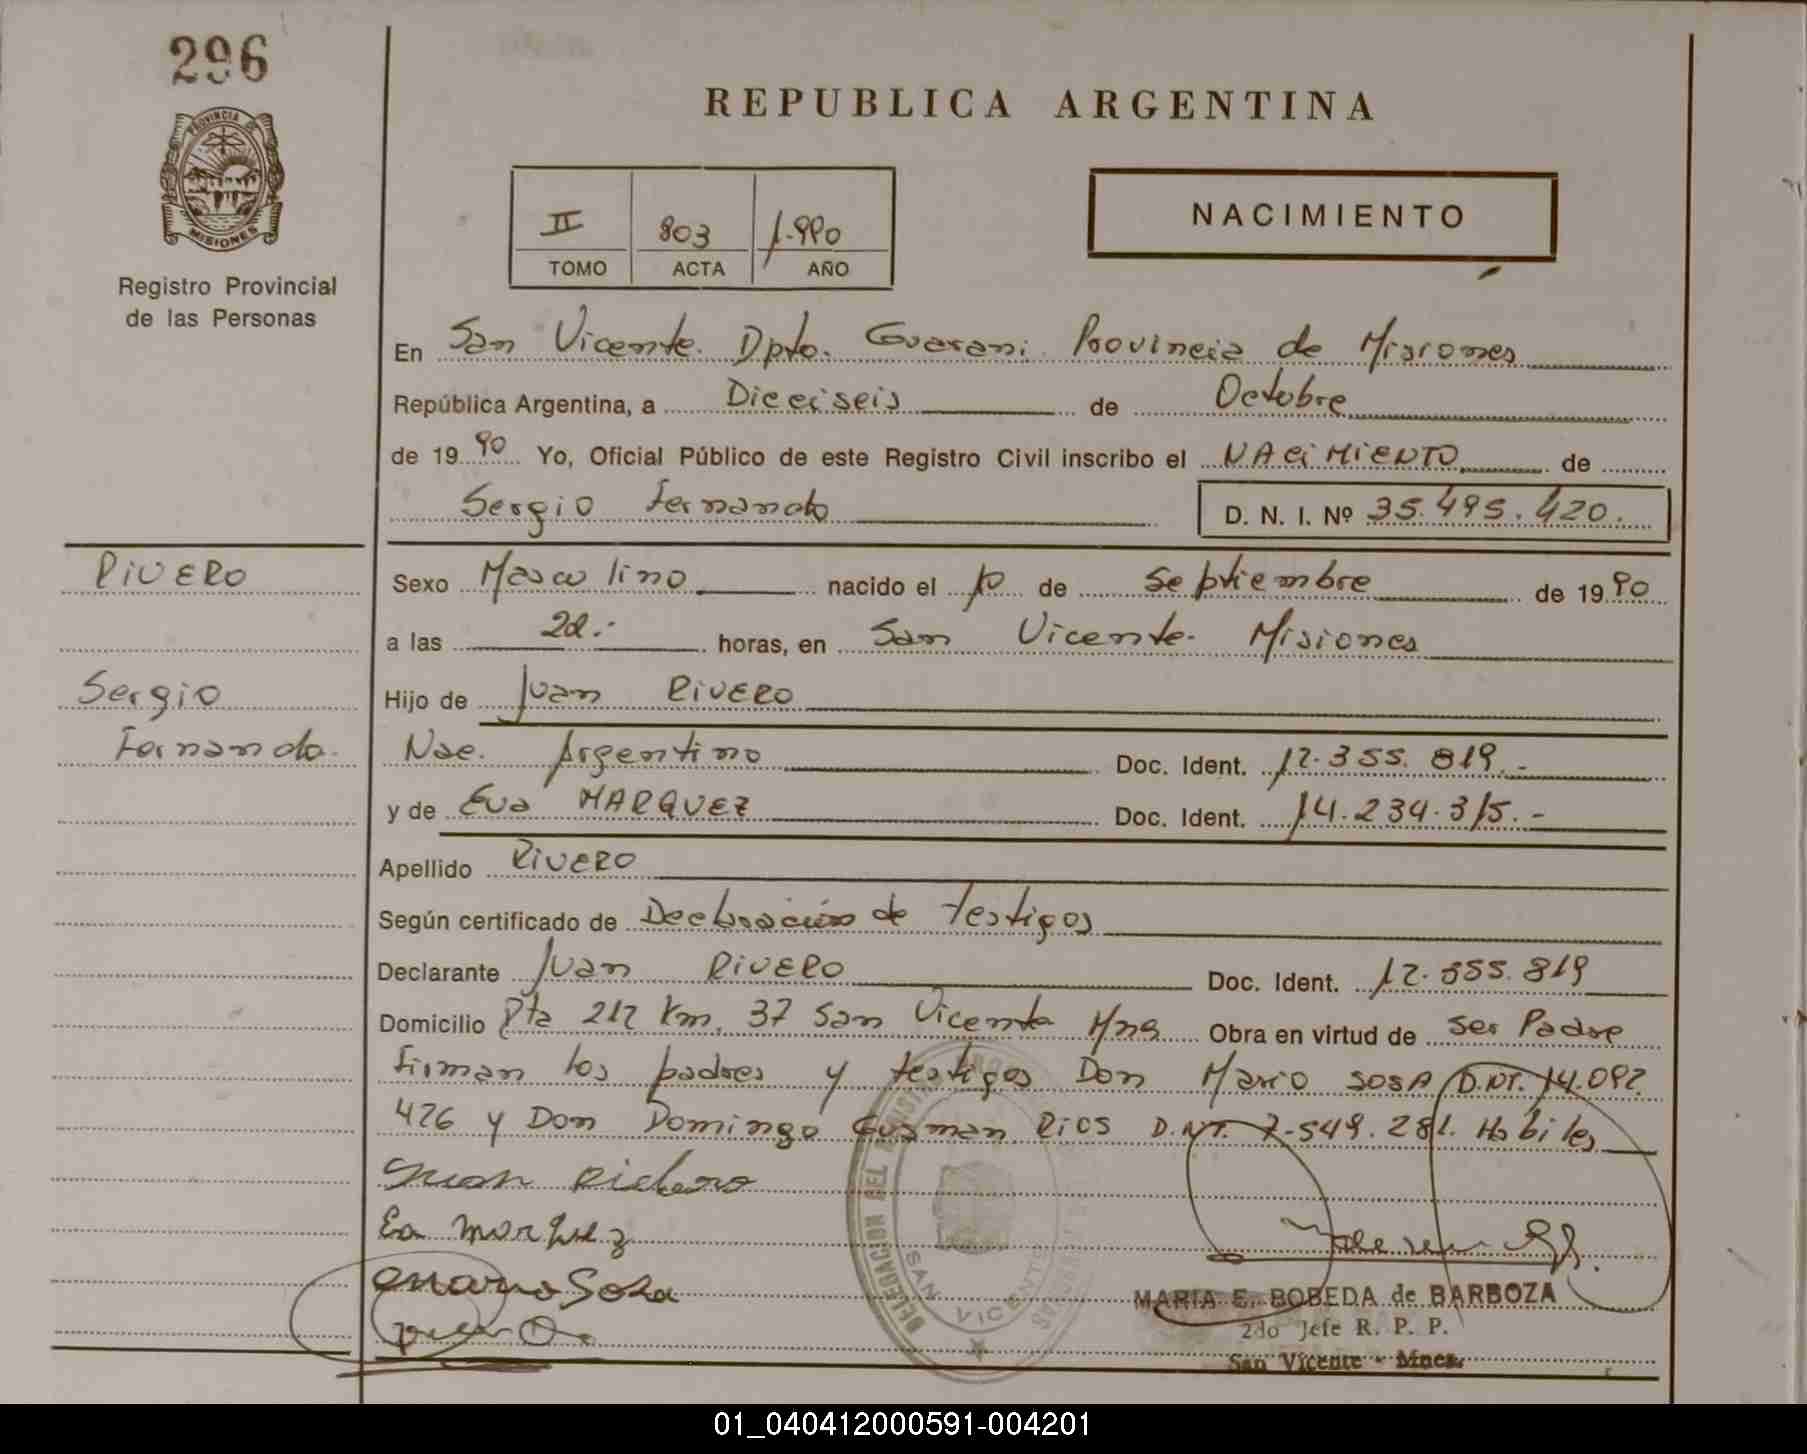 296
PROVINCIA DE
MISIONES
Registro Provincial
de las Personas
REPUBLICA ARGENTINA
II 803 1.990
TOMO ACTA AÑO
NACIMIENTO
En San Vicente. Dpto. Guarani Provincia de Misiones
República Argentina, a Dieciseis de Octubre
de 1990 Yo, Oficial Público de este Registro Civil inscribo el NACIMIENTO de
Sergio Fernando D. N. I. Nº 35.495.420.
RIVERO
Sergio
Fernando.
Sexo Masculino nacido el 10 de Septiembre de 1990
a las horas, en San Vicente. Misiones
Hijo de Juan RIVERO
Nac. Argentino Doc. Ident. 12.355.819.-
y de Eva MARQUEZ Doc. Ident. 14.234.315.-
Apellido RIVERO
Según certificado de Declaración de testigos
Declarante Juan RIVERO Doc. Ident. 12.355.819
Domicilio Rta 212 Km. 37 San Vicente Mns Obra en virtud de ser Padre
Firman los padres y testigos Don Mario SOSA D.NI. 14.092
426 y Don Domingo Guzman RIOS D.NI. 7.549.281. Habiles
Eva marquez
Mario Sosa
DELEGACION DEL REGISTRO
SAN VICENTE
MARIA E. BOBEDA de BARBOZA
2do Jefe R. P. P.
San Vicente - Mnes.
01_040412000591-004201